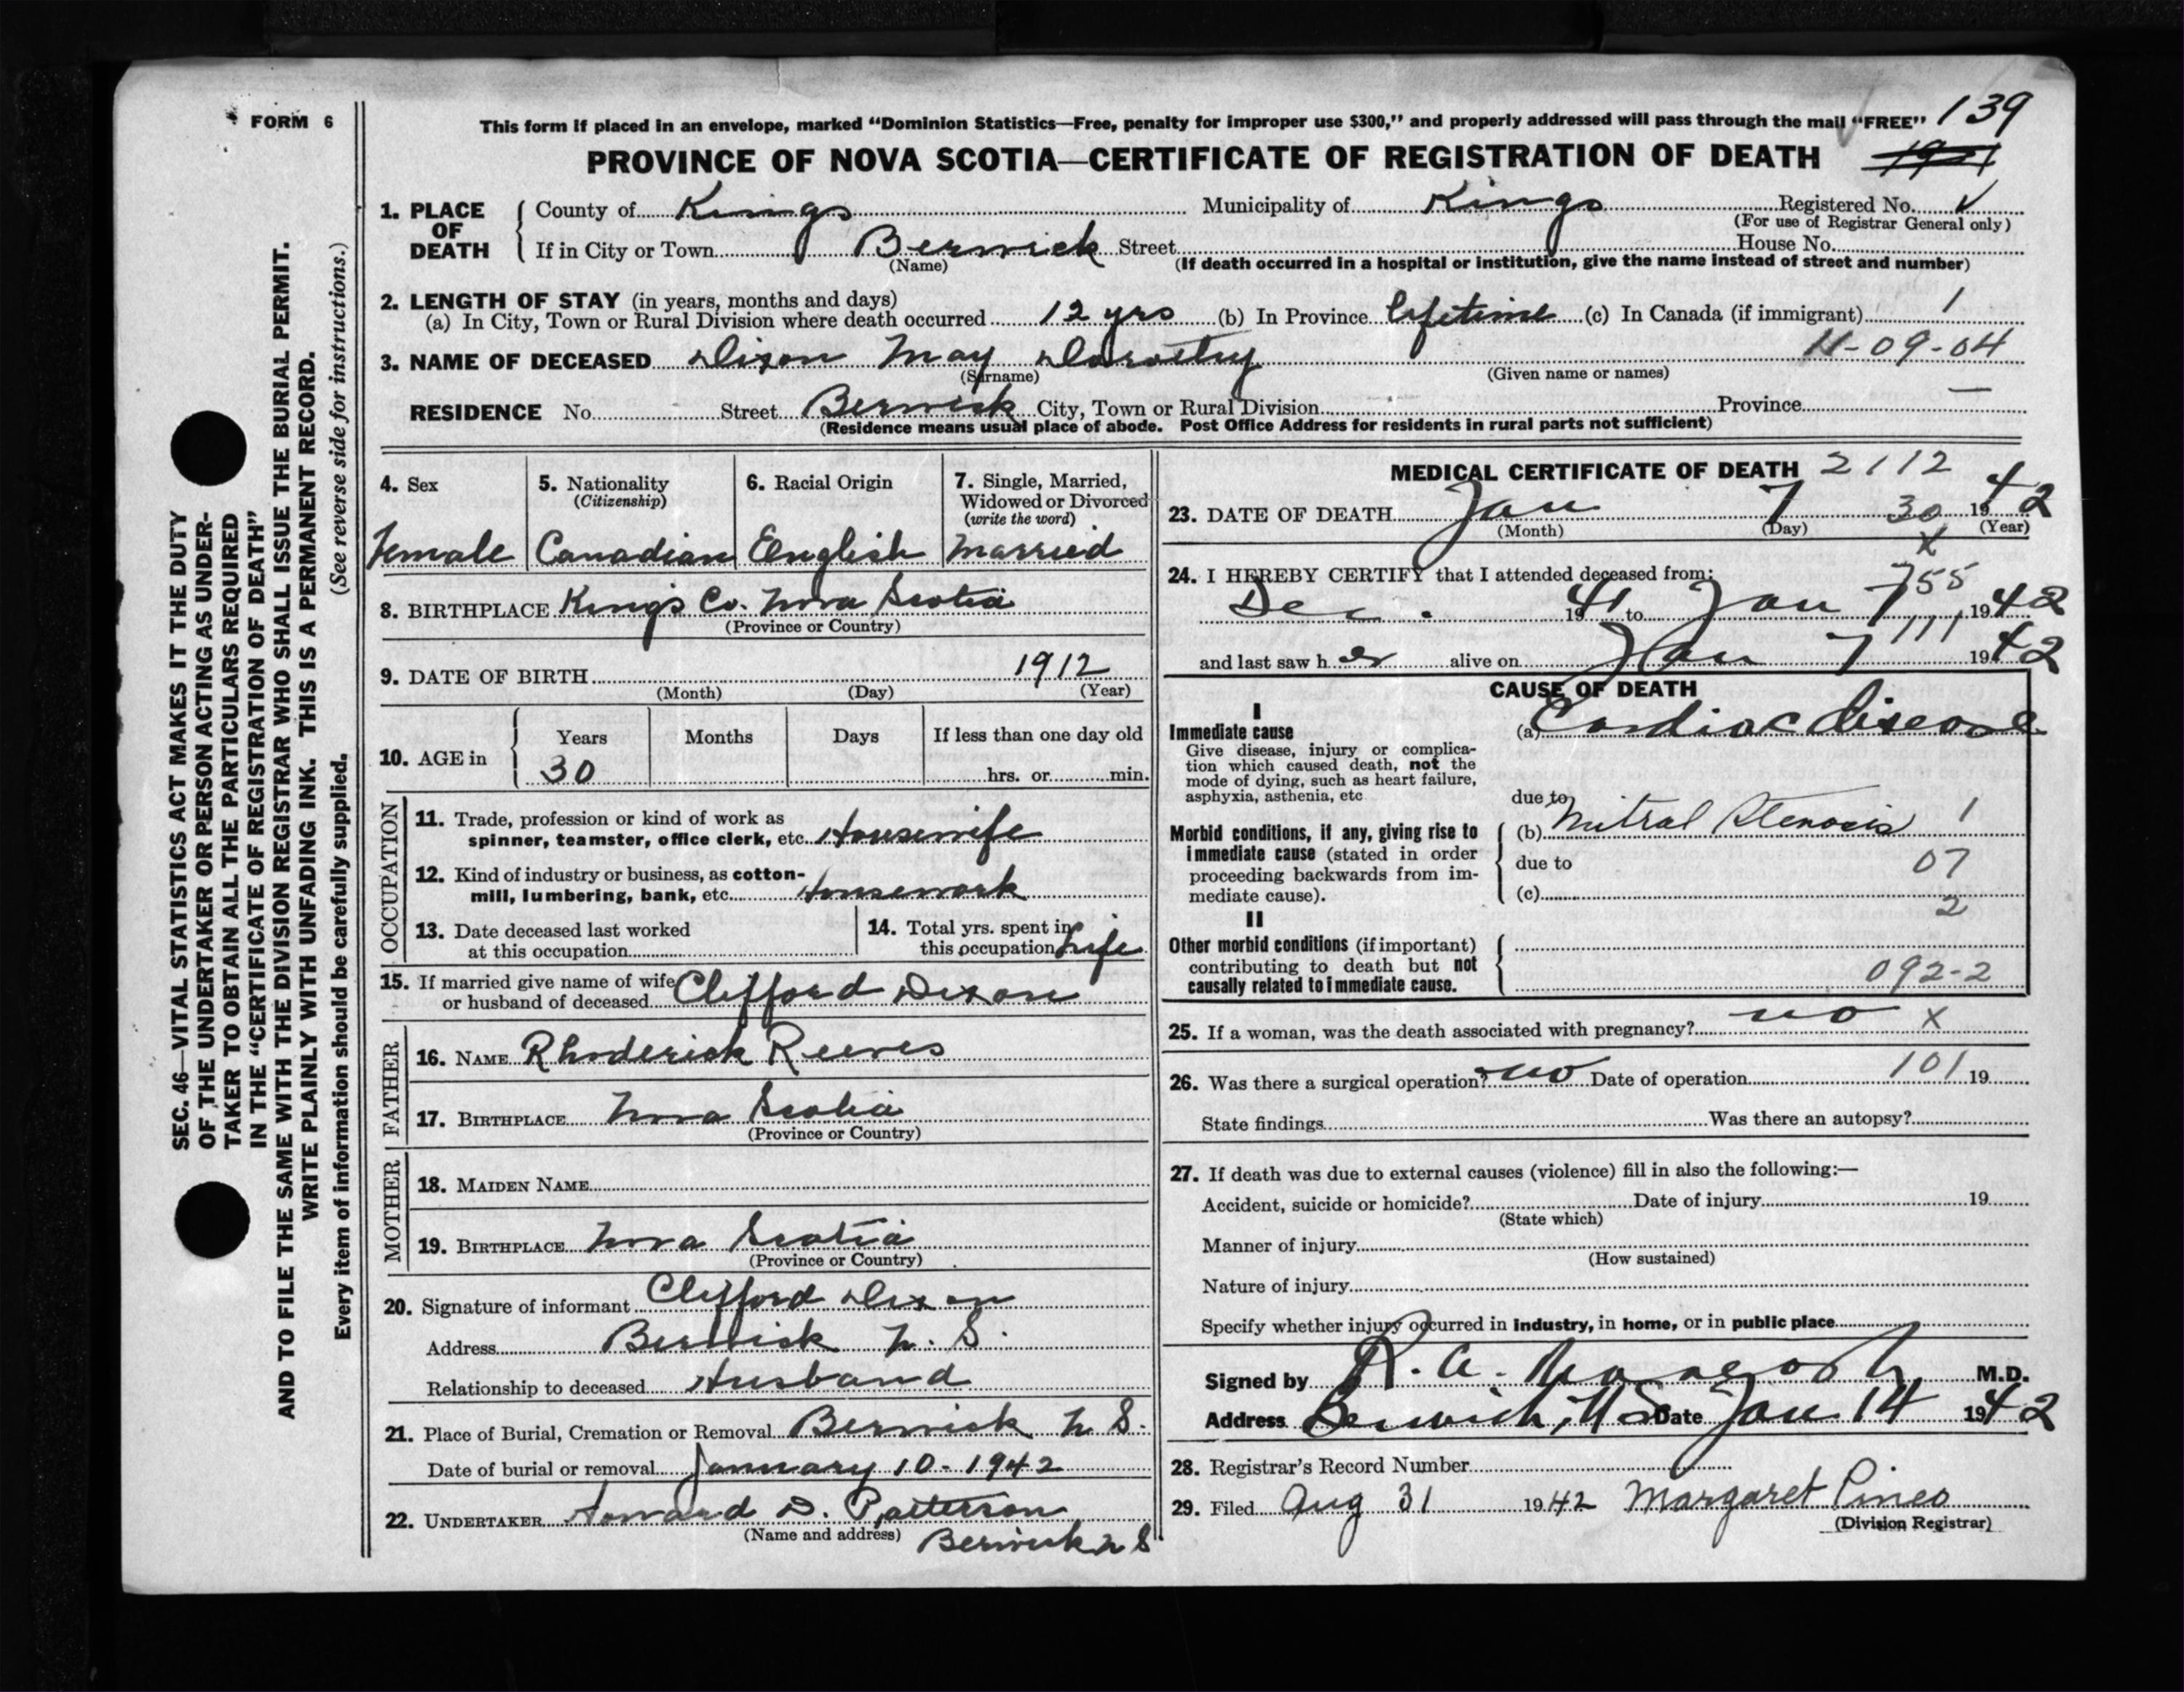 FORM 6
This form if placed in an envelope, marked “Dominion Statistics—Free, penalty for improper use $300,” and properly addressed will pass through the mail “FREE” 139
PROVINCE OF NOVA SCOTIA—CERTIFICATE OF REGISTRATION OF DEATH
1. PLACE OF DEATH
County of Kings Municipality of Kings Registered No. ✓
(For use of Registrar General only)
If in City or Town Berwick Street House No.
(Name) (If death occurred in a hospital or institution, give the name instead of street and number)
2. LENGTH OF STAY (in years, months and days)
(a) In City, Town or Rural Division where death occurred 12 yrs (b) In Province lifetime (c) In Canada (if immigrant) 1
3. NAME OF DECEASED Dixon May Dorothy 11-09-04
(Surname) (Given name or names)
RESIDENCE No. Street Berwick City, Town or Rural Division Province —
(Residence means usual place of abode. Post Office Address for residents in rural parts not sufficient)
4. Sex
Female
5. Nationality
(Citizenship)
Canadian
6. Racial Origin
English
7. Single, Married,
Widowed or Divorced
(write the word)
Married
8. BIRTHPLACE Kings Co. Nova Scotia
(Province or Country)
9. DATE OF BIRTH 1912
(Month) (Day) (Year)
10. AGE in
Years Months Days If less than one day old
30 hrs. or min.
OCCUPATION
11. Trade, profession or kind of work as
spinner, teamster, office clerk, etc. Housewife
12. Kind of industry or business, as cotton-
mill, lumbering, bank, etc. Housework
13. Date deceased last worked
at this occupation
14. Total yrs. spent in
this occupation Life
15. If married give name of wife
or husband of deceased Clifford Dixon
FATHER
16. NAME Rhoderick Reeves
17. BIRTHPLACE Nova Scotia
(Province or Country)
MOTHER
18. MAIDEN NAME
19. BIRTHPLACE Nova Scotia
(Province or Country)
20. Signature of informant Clifford Dixon
Address Berwick N. S.
Relationship to deceased Husband
21. Place of Burial, Cremation or Removal Berwick N S.
Date of burial or removal January 10 - 1942
22. UNDERTAKER Howard D. Patterson
(Name and address) Berwick N S
MEDICAL CERTIFICATE OF DEATH 2112
23. DATE OF DEATH Jan 7 30 1942
(Month) (Day) (Year)
X
24. I HEREBY CERTIFY that I attended deceased from:
Dec. 1941 to Jan 7 55 1942
111
and last saw her alive on Jan 7 1942
CAUSE OF DEATH
I
Immediate cause
Give disease, injury or complica-
tion which caused death, not the
mode of dying, such as heart failure,
asphyxia, asthenia, etc
(a) Cardiac disease
due to
Morbid conditions, if any, giving rise to
immediate cause (stated in order
proceeding backwards from im-
mediate cause).
(b) Mitral Stenosis 1
due to 07
(c)
2
II
Other morbid conditions (if important)
contributing to death but not
causally related to immediate cause.
092-2
25. If a woman, was the death associated with pregnancy? no X
26. Was there a surgical operation? no Date of operation 101 19
State findings Was there an autopsy?
27. If death was due to external causes (violence) fill in also the following:—
Accident, suicide or homicide? Date of injury 19
(State which)
Manner of injury
(How sustained)
Nature of injury
Specify whether injury occurred in industry, in home, or in public place
Signed by R. A. M.D.
Address Berwick, N S Date Jan 14 1942
28. Registrar's Record Number
29. Filed Aug 31 1942 Margaret Pineo
(Division Registrar)
SEC. 46—VITAL STATISTICS ACT MAKES IT THE DUTY
OF THE UNDERTAKER OR PERSON ACTING AS UNDER-
TAKER TO OBTAIN ALL THE PARTICULARS REQUIRED
IN THE “CERTIFICATE OF REGISTRATION OF DEATH”
AND TO FILE THE SAME WITH THE DIVISION REGISTRAR WHO SHALL ISSUE THE BURIAL PERMIT.
WRITE PLAINLY WITH UNFADING INK. THIS IS A PERMANENT RECORD.
Every item of information should be carefully supplied. (See reverse side for instructions.)